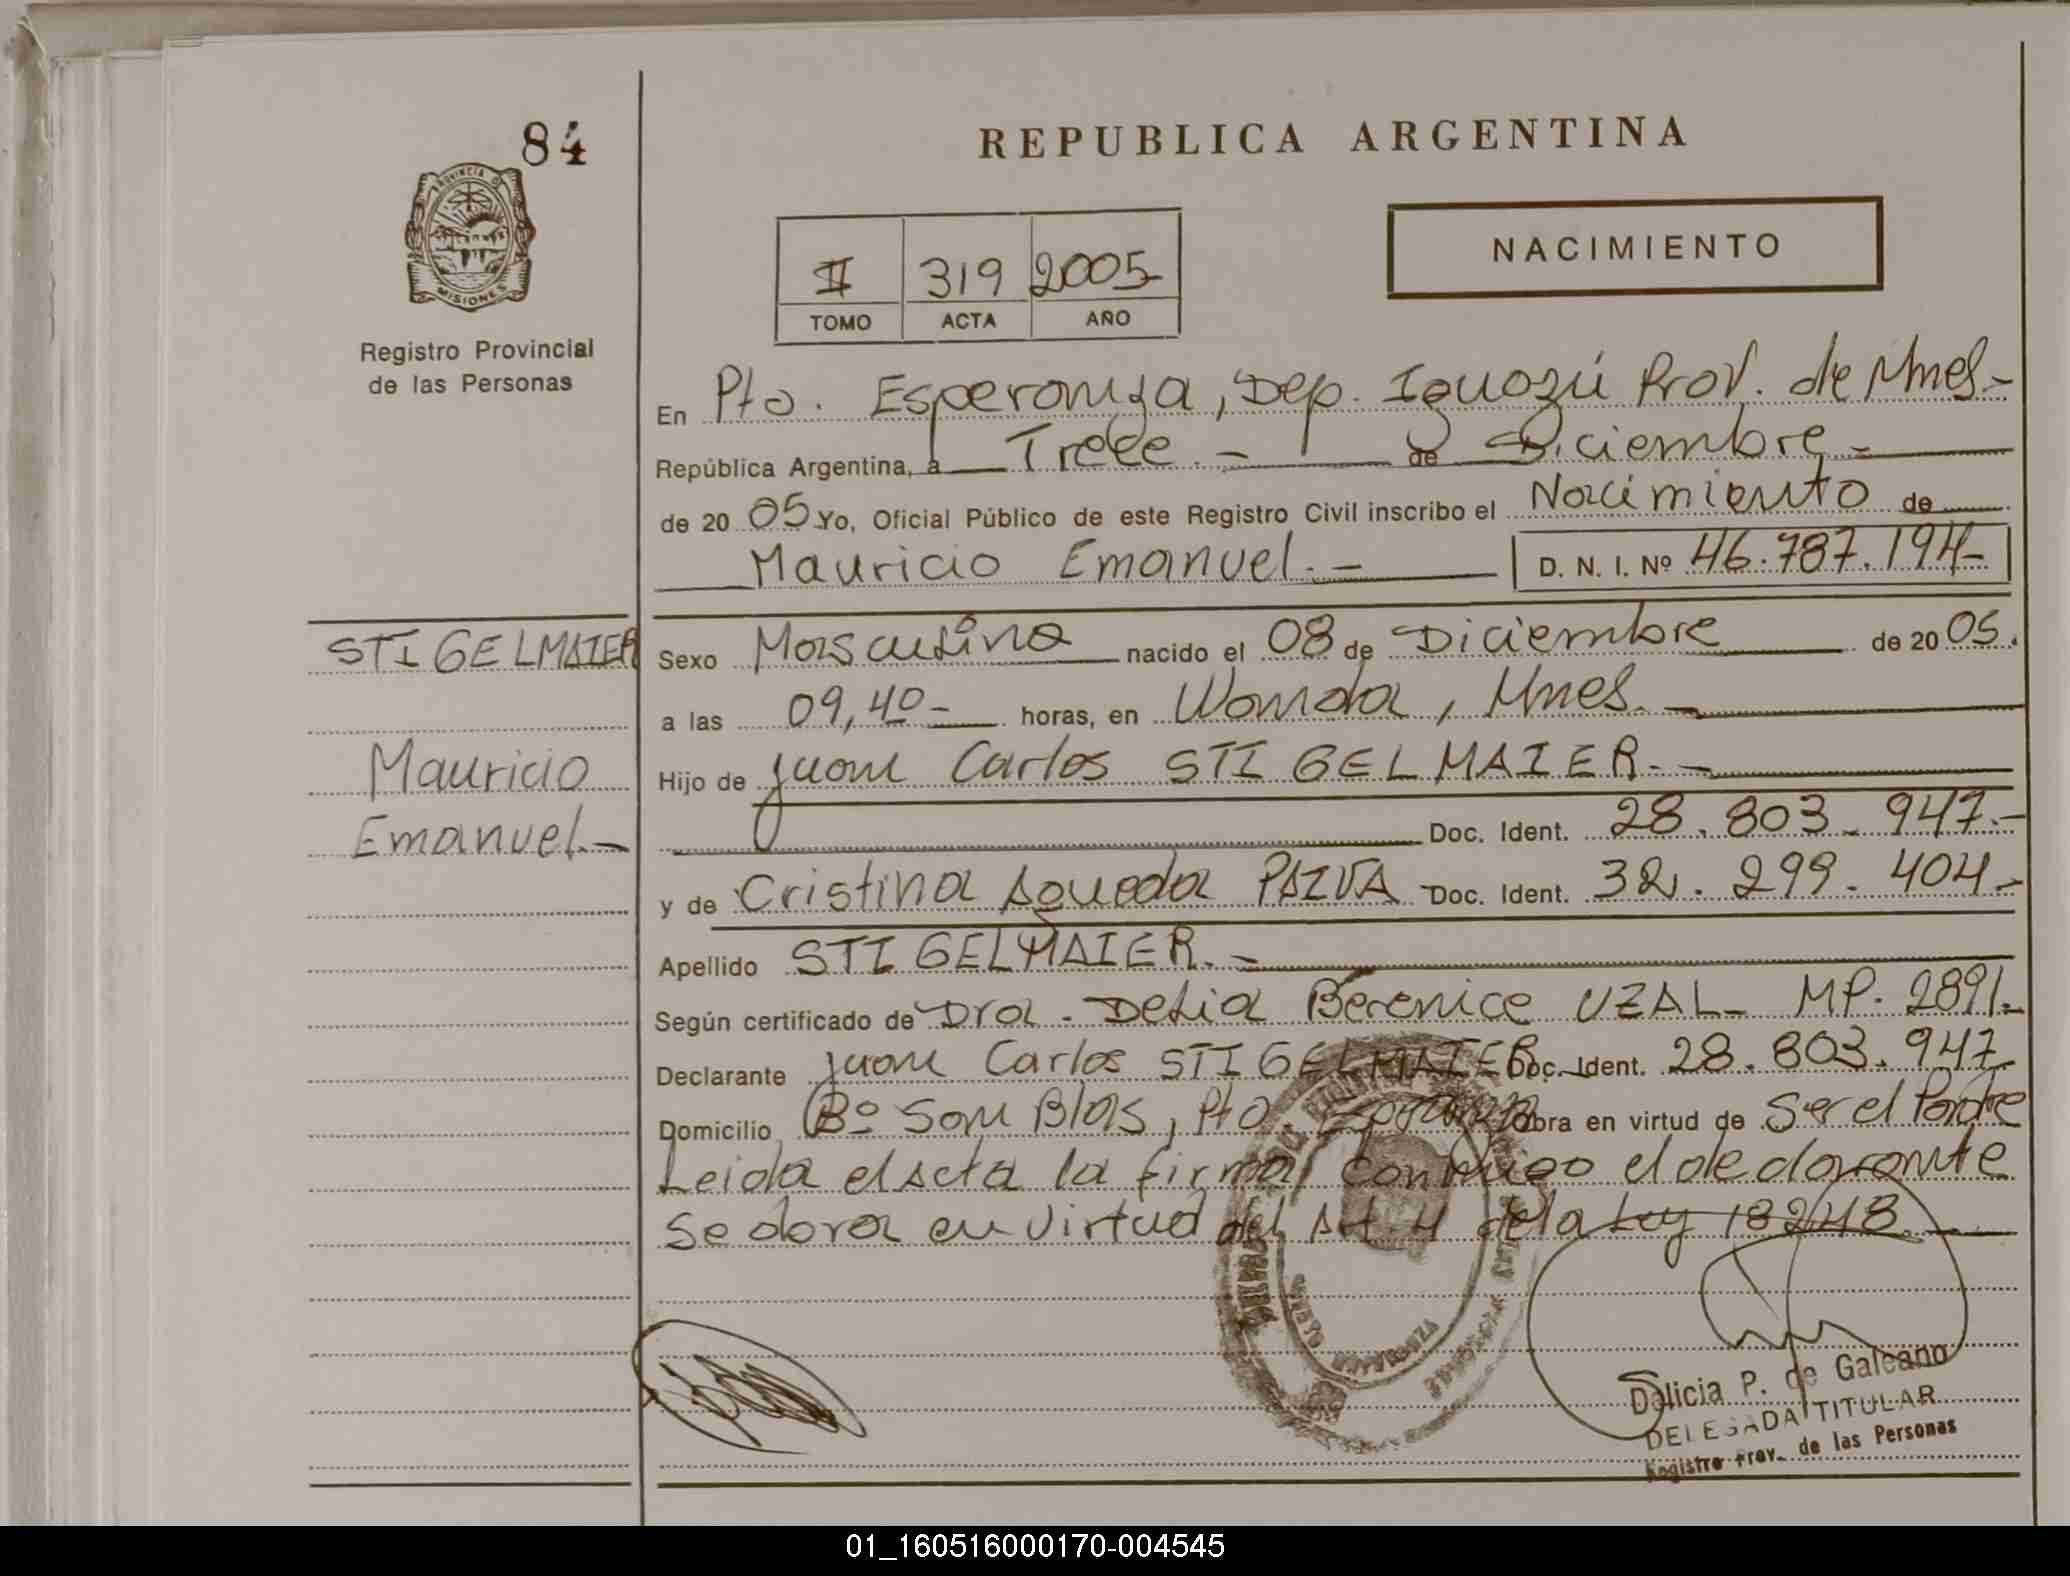 84
REPUBLICA ARGENTINA
PROVINCIA D
MISIONES
Registro Provincial
de las Personas
NACIMIENTO
II 319 2005
TOMO ACTA AÑO
En Pto. Esperanza, Dep. Iguazú Prov. de Mnes-
República Argentina, a Trece.- de Diciembre-
de 20 05 Yo, Oficial Público de este Registro Civil inscribo el Nacimiento de
Mauricio Emanuel.- D. N. I. Nº 46.787.194-
STIGELMAIER
Mauricio
Emanuel.-
Sexo Masculino nacido el 08 de Diciembre de 20 05.
a las 09,40- horas, en Wanda, Mnes.-
Hijo de Juan Carlos STIGELMAIER.-
Doc. Ident. 28.803.947.-
y de Cristina Agueda PAIVA - Doc. Ident. 32.299.404-
Apellido STIGELMAIER.-
Según certificado de Dra. Delia Berenice UZAL- MP. 2891.-
Declarante Juan Carlos STIGELMAIER Doc. Ident. 28.803.947
Domicilio Bº San Blas, Pto. Esperanza Obra en virtud de Ser el Padre
Leida el Acta la firma conmigo el declarante
Se dora en virtud del Art. 4 de la Ley 18248.-
Delicia P. de Galeano
DELEGADA TITULAR
Registro Prov. de las Personas
01_160516000170-004545